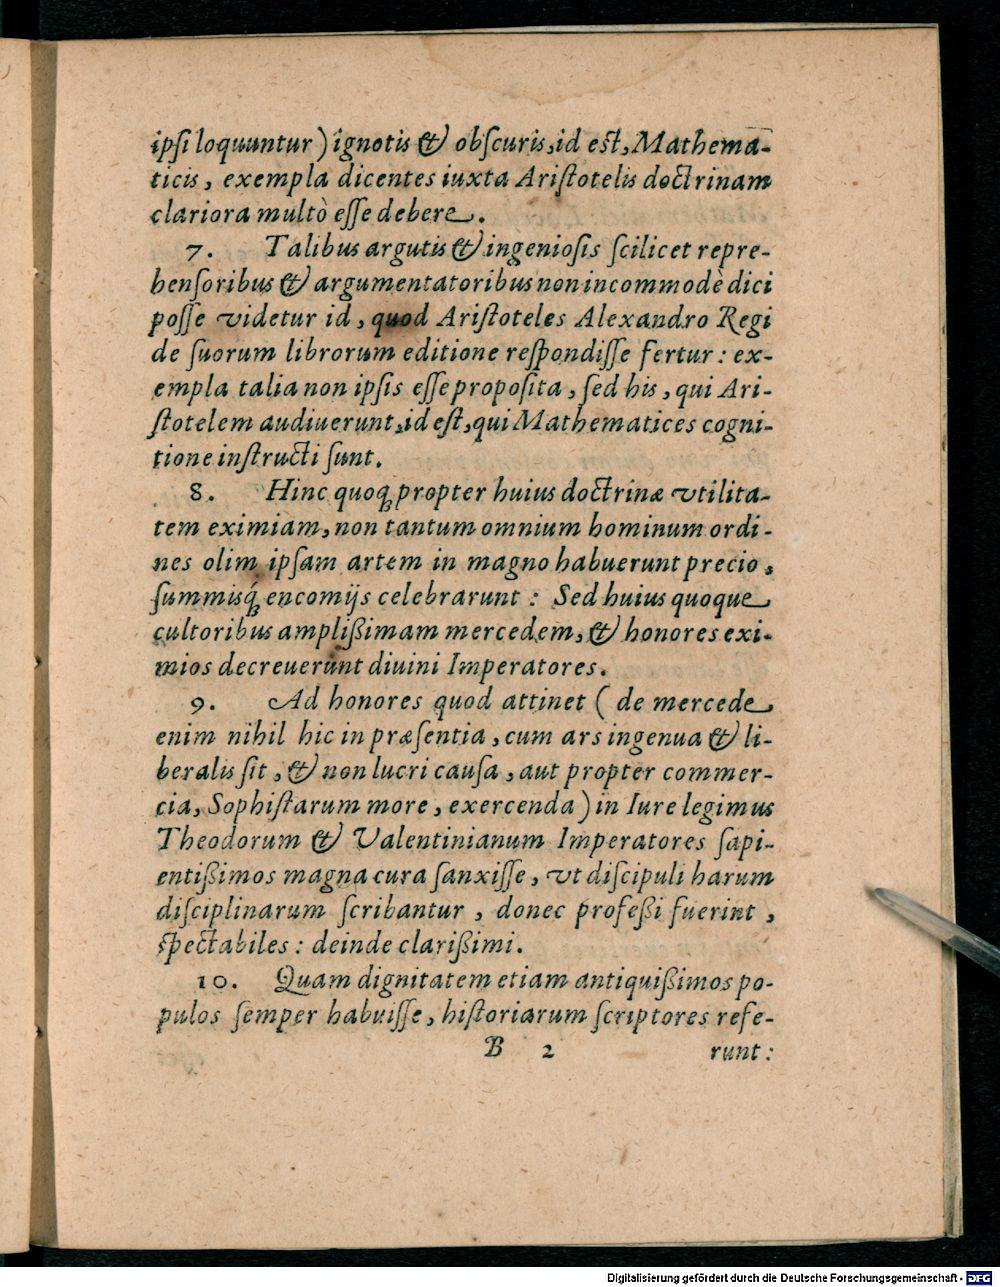 ipſi loquuntur) ignotis & obſcuris, id eſt, Mathema-
ticis, exempla dicentes iuxta Ariſtotelis doctrinam
clariora multò eſſe debere.
7. Talibus argutis & ingeniosis ſcilicet repre-
henſoribus & argumentatoribus non incommodè dici
poſſe videtur id, quod Ariſtoteles Alexandro Regi
de ſuorum librorum editione reſpondiſſe fertur: ex-
empla talia non ipſis eſſe propoſita, ſed his, qui Ari-
ſtotelem audiuerunt, id eſt, qui Mathematices cogni-
tione inſtructi ſunt.
8. Hinc quoq̃ propter huius doctrinæ vtilita-
tem eximiam, non tantum omnium hominum ordi-
nes olim ipſam artem in magno habuerunt precio,
ſummisq́; encomijs celebrarunt: Sed huius quoque
cultoribus amplißimam mercedem, & honores exi-
mios decreuerunt diuini Imperatores.
9. Ad honores quod attinet (de mercede
enim nihil hic in præſentia, cum ars ingenua & li-
beralis ſit, & non lucri cauſa, aut propter commer-
cia, Sophiſtarum more, exercenda) in Iure legimus
Theodorum & Valentinianum Imperatores ſapi-
entißimos magna cura ſanxiſſe, vt diſcipuli harum
diſciplinarum ſcribantur, donec profeßi fuerint,
ſpectabiles: deinde clarißimi.
10. Quam dignitatem etiam antiquißimos po-
pulos ſemper habuiſſe, hiſtoriarum ſcriptores refe-
B 2 runt:
Digitalisierung gefördert durch die Deutsche Forschungsgemeinschaft - DFG